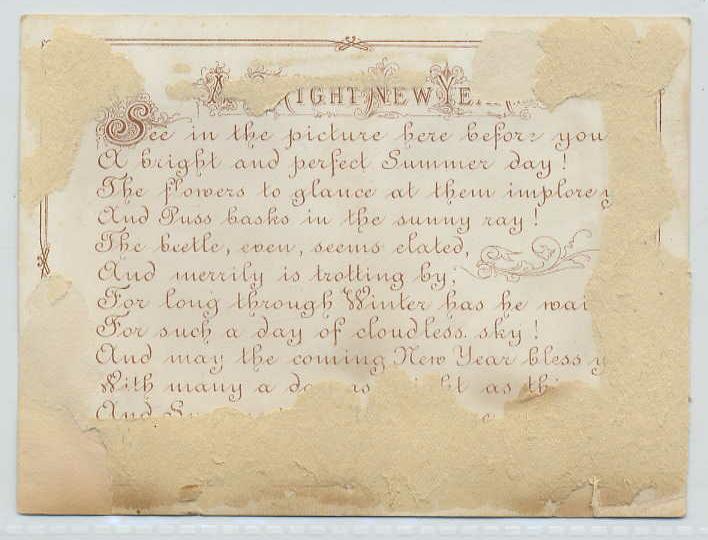 A BRIGHT NEW YE
See in the picture here before you
A bright and perfect Summer day!
The flowers to glance at them implore y
And Puss basks in the sunny ray!
The beetle, even, seems elated,
And merrily is trotting by;
For long through Winter has he wai
For such a day of cloudless sky!
And may the coming New Year bless y
With many a as
And